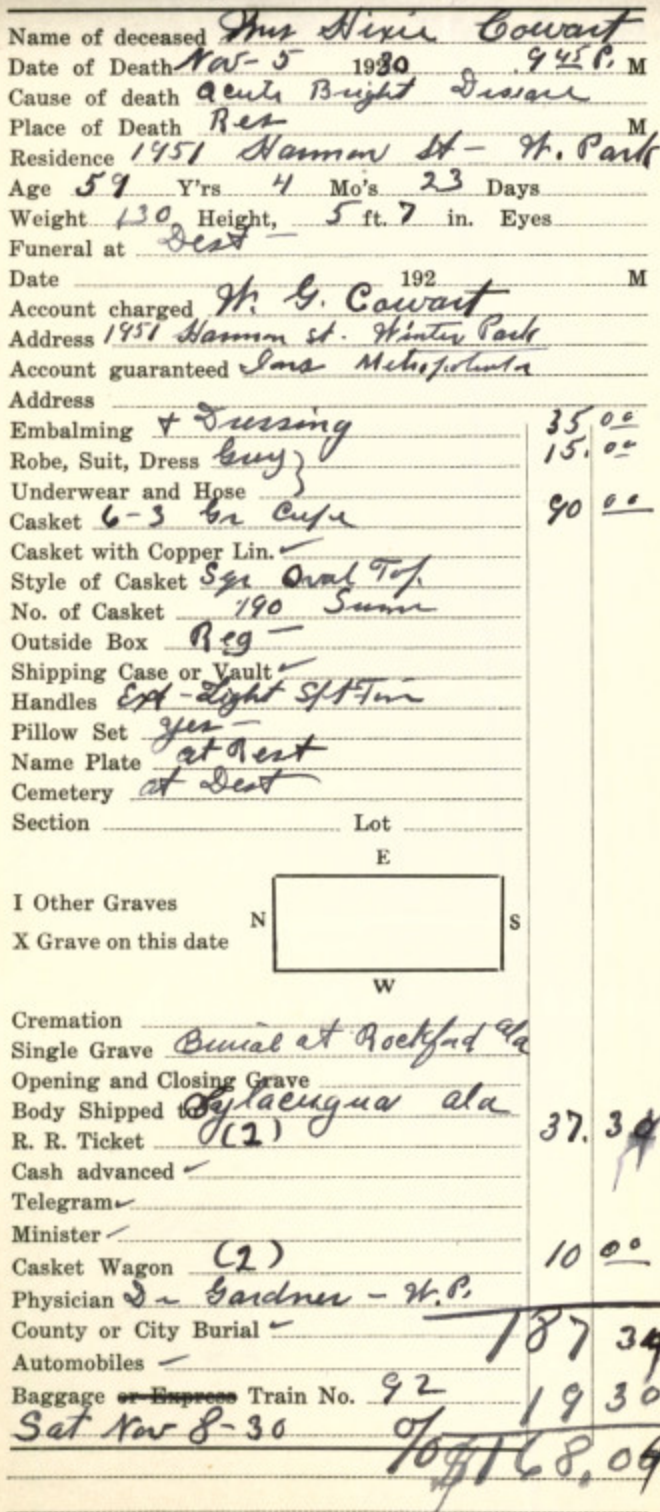 Name of deceased Mrs Dixie Cowart
Date of Death Nov - 5 1930 9 45 P. M
Cause of death Acute Bright Disease
Place of Death Res M
Residence 1951 Harmon St - W. Park
Age 59 Y'rs 4 Mo's 23 Days
Weight 130 Height, 5 ft. 7 in. Eyes
Funeral at Dest -
Date 192 M
Account charged W. G. Cowart
Address 1951 Harmon st. Winter Park
Account guaranteed Ins Metropolitan
Address
Embalming + Dressing 35 00
Robe, Suit, Dress Grey } 15. 00
Underwear and Hose
Casket 6-3 Gr Crepe 90 00
Casket with Copper Lin. ✓
Style of Casket Sqr Oval Top
No. of Casket 190
Outside Box Reg -
Shipping Case or Vault ✓
Handles Ext - Light
Pillow Set yes -
Name Plate at Rest
Cemetery at Dest
Section Lot
E
I Other Graves
N S
X Grave on this date
W
Cremation
Single Grave Burial at Rockford Ala
Opening and Closing Grave
Body Shipped to Sylacugua ala
R. R. Ticket (2) 37. 34
Cash advanced ✓
Telegram ✓
Minister ✓
Casket Wagon (2) 10 00
Physician Dr Gardner - W. P.
County or City Burial ✓ 187 34
Automobiles ✓
Baggage or Express Train No. 92 19 30
Sat Nov 8-30 % $168.04